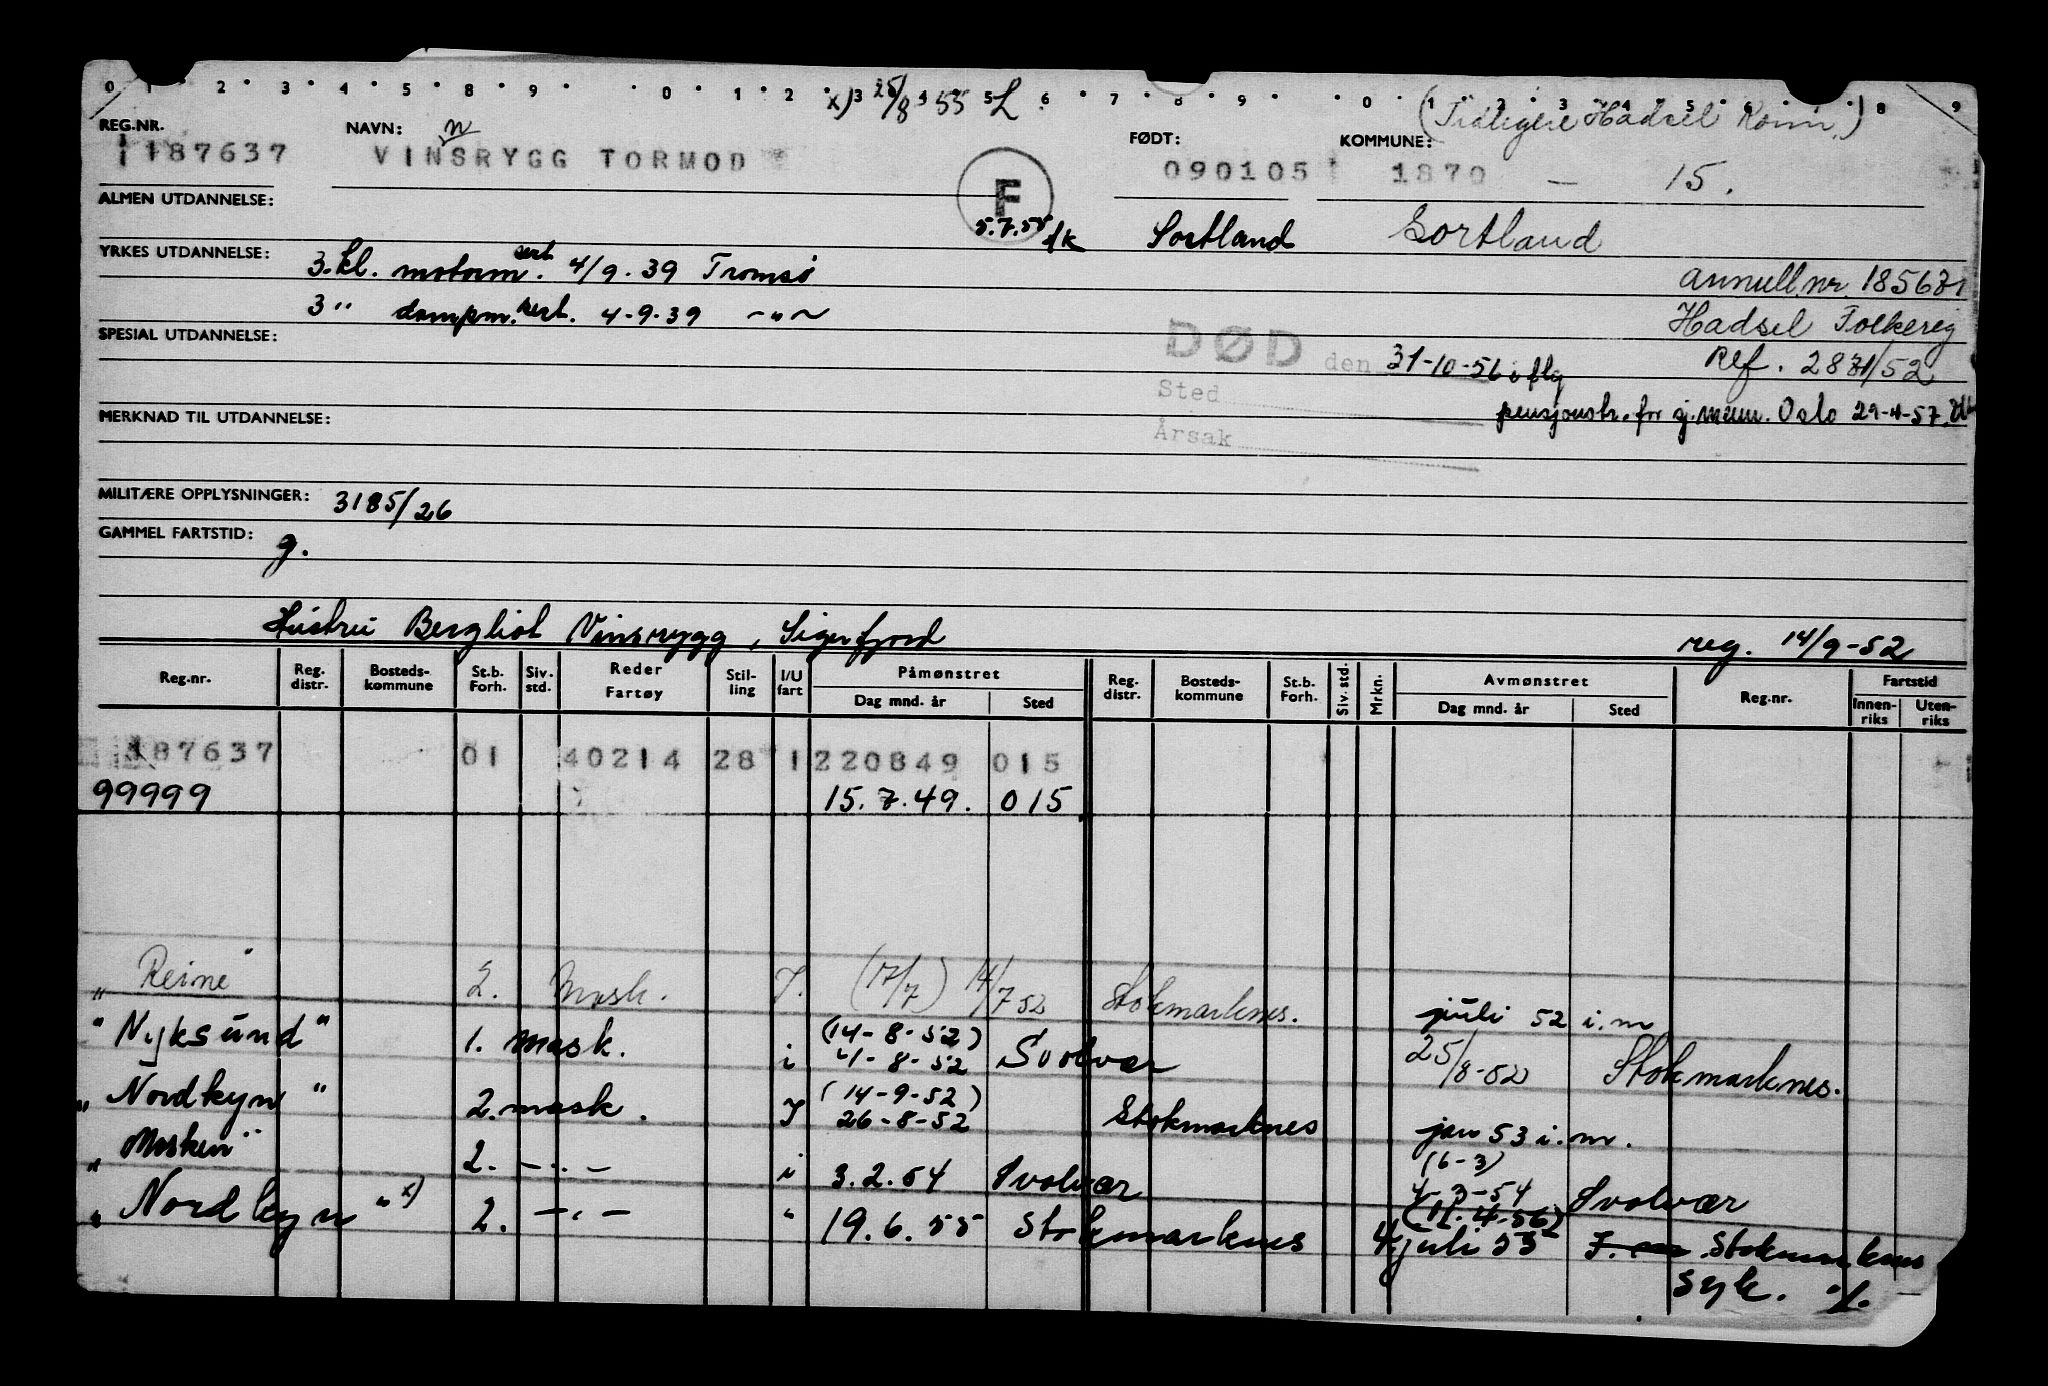 0 1 2 3 4 5 6 8 9 0 1 2 3 4 5 6 7 8 9 0 1 2 3 4 5 6 8 9
x) 25/8 55 L
(Tidligere Hadsel Komm.)
REG.NR. NAVN: FØDT: KOMMUNE:
n
187637 VINSRYGG TORMOD 090105 1870 — 15.
ALMEN UTDANNELSE:
F
5.7.55 Sortland Sortland
YRKES UTDANNELSE: 3.kl. motorm sert. 4/9.39 Tromsø
annull.nr. 185671
3 " dampm.sert. 4-9-39 -"-
Hadsel Folkereg
SPESIAL UTDANNELSE:
DØD den 31-10-56 i flg
Ref. 2871/52
Sted
pensjonstr. for sj.menn. Oslo 29-4-57.
MERKNAD TIL UTDANNELSE:
Årsak
MILITÆRE OPPLYSNINGER: 3185/26
GAMMEL FARTSTID: g.
Hustru Bergliot Vinsrygg, Sigerfjord reg. 14/9-52
Reg.nr. Reg. distr. Bosteds-kommune St.b. Forh. Siv. std. Reder Fartøy Stil-ling I/U fart Påmønstret Dag mnd. år Sted Reg. distr. Bosteds-kommune St.b. Forh. Siv. std. Mrkn. Avmønstret Dag mnd. år Sted Reg.nr. Fartstid Innen-riks Uten-riks
187637 01 40214 28 1 220849 015
99999 15.7.49. 015
" Reine " 2. Mask. I. (17/7) 14/7 52 Stokmarknes. juli 52 i.m
" Nyksund " 1. mask. i (14-8-52) 4-8-52 Svolvær 25/8-52 Stokmarknes.
" Nordkyn " 2. mask. I (14-9-52) 26-8-52 Stokmarknes jan 53 i.m.
" Mosken " 2. -"- i 3.2.54 Svolvær (6-3) 4-3-54 Svolvær
" Nordkyn " x) 2. -"- " 19.6.55 Stokmarknes (11.4-56) 4 juli 55 Stokmarknes
syk. ./.